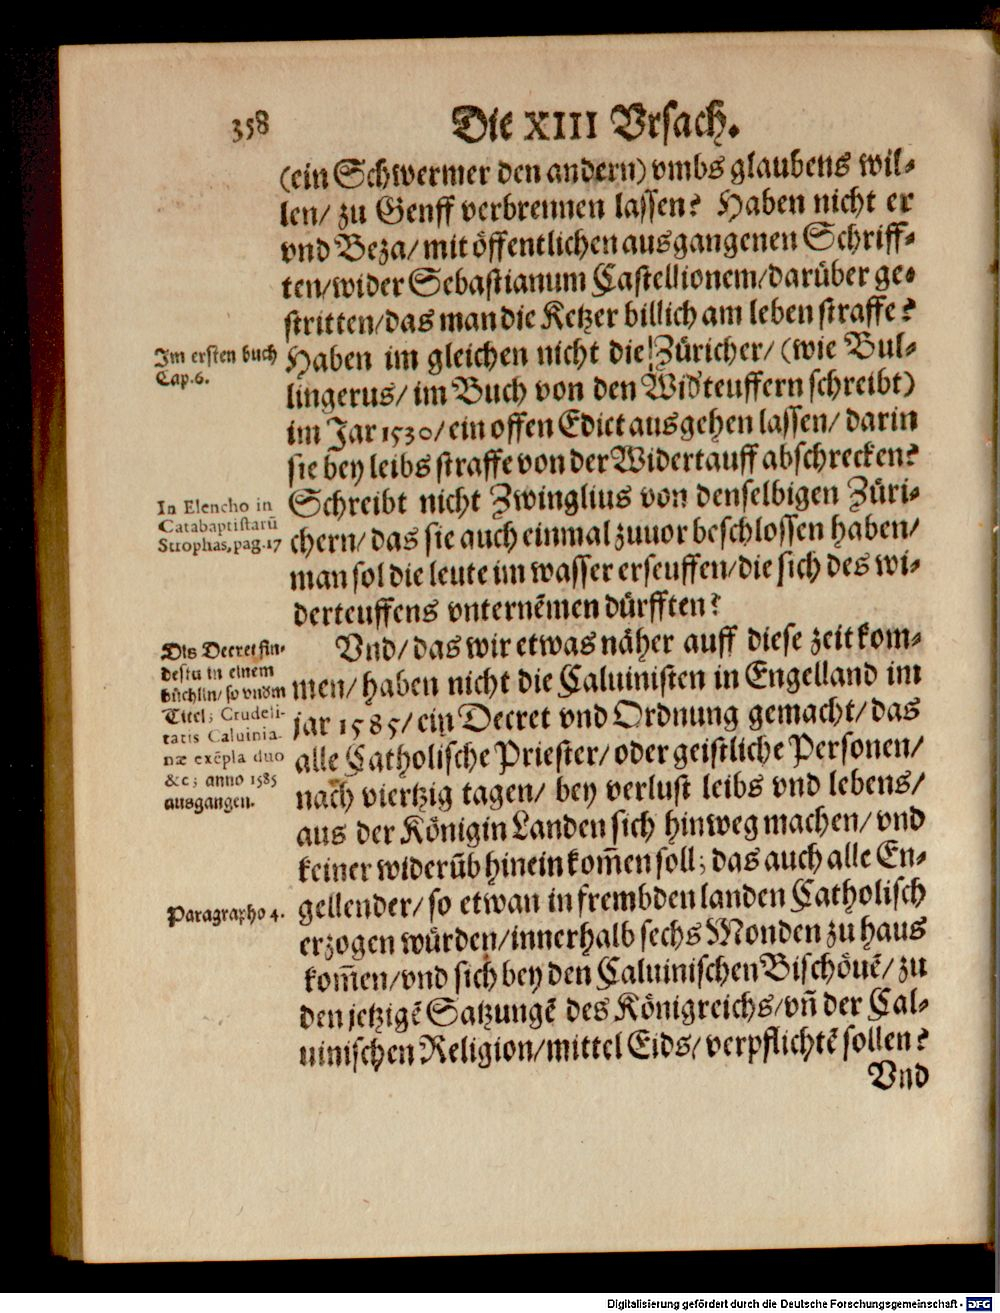 358
Die XIII Vrsach.
(ein Schwermer den andern) vmbs glaubens wil-
len/ zu Genff verbrennen lassen? Haben nicht er
vnd Beza/ mit öffentlichen ausgangenen Schriff-
ten/ wider Sebastianum Castellionem/ darüber ge-
stritten/ das man die Ketzer billich am leben straffe?
Haben im gleichen nicht die Züricher/ (wie Bul-
lingerus/ im Buch von den Widteuffern schreibt)
im Jar 1530/ ein offen Edict ausgehen lassen/ darin
sie bey leibs straffe von der Widertauff abschrecken?
Schreibt nicht Zwinglius von denselbigen Züri-
chern/ das sie auch einmal zuuor beschlossen haben/
man sol die leute im wasser erseuffen/ die sich des wi-
derteuffens vnternẽmen dürfften?
Vnd/ das wir etwas näher auff diese zeit kom-
men/ haben nicht die Caluinisten in Engelland im
jar 1585/ ein Decret vnd Ordnung gemacht/ das
alle Catholische Priester/ oder geistliche Personen/
nach viertzig tagen/ bey verlust leibs vnd lebens/
aus der Königin Landen sich hinweg machen/ vnd
keiner widerũb hinein kom̃en soll; das auch alle En-
gellender/ so etwan in frembden landen Catholisch
erzogen würden/ innerhalb sechs Monden zu haus
kom̃en/ vnd sich bey den Caluinischen Bischöuẽ/ zu
den jetzigẽ Satzungẽ des Königreichs/ vñ der Cal-
uinischen Religion/ mittel Eids/ verpflichtẽ sollen?
Vnd
Im ersten buch
Cap. 6.
In Elencho in
Catabaptistarũ
Strophas, pag. 17
Dis Decret fin-
destu in einem
büchlin/ so vndm
Titel; Crudeli-
tatis Caluinia-
næ exẽpla duo
&c; anno 1585
ausgangen.
Paragrapho 4.
Digitalisierung gefördert durch die Deutsche Forschungsgemeinschaft - DFG